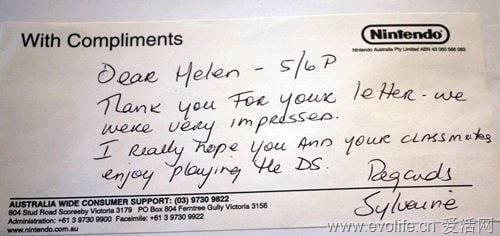 With Compliments
Nintendo
Nintendo Australia Pty Limited ABN 43 060 566 083
Dear Helen - 5/6P
Thank you for your letter - we
were very impressed.
I really hope you and your classmates
enjoy playing the DS.
Regards
Sylvaine
AUSTRALIA WIDE CONSUMER SUPPORT: (03) 9730 9822
804 Stud Road Scoresby Victoria 3179 PO Box 804 Ferntree Gully Victoria 3156
Administration: +61 3 9730 9900 Facsimile: +61 3 9730 9922
www.nintendo.com.au
www.evolife.cn 爱活网